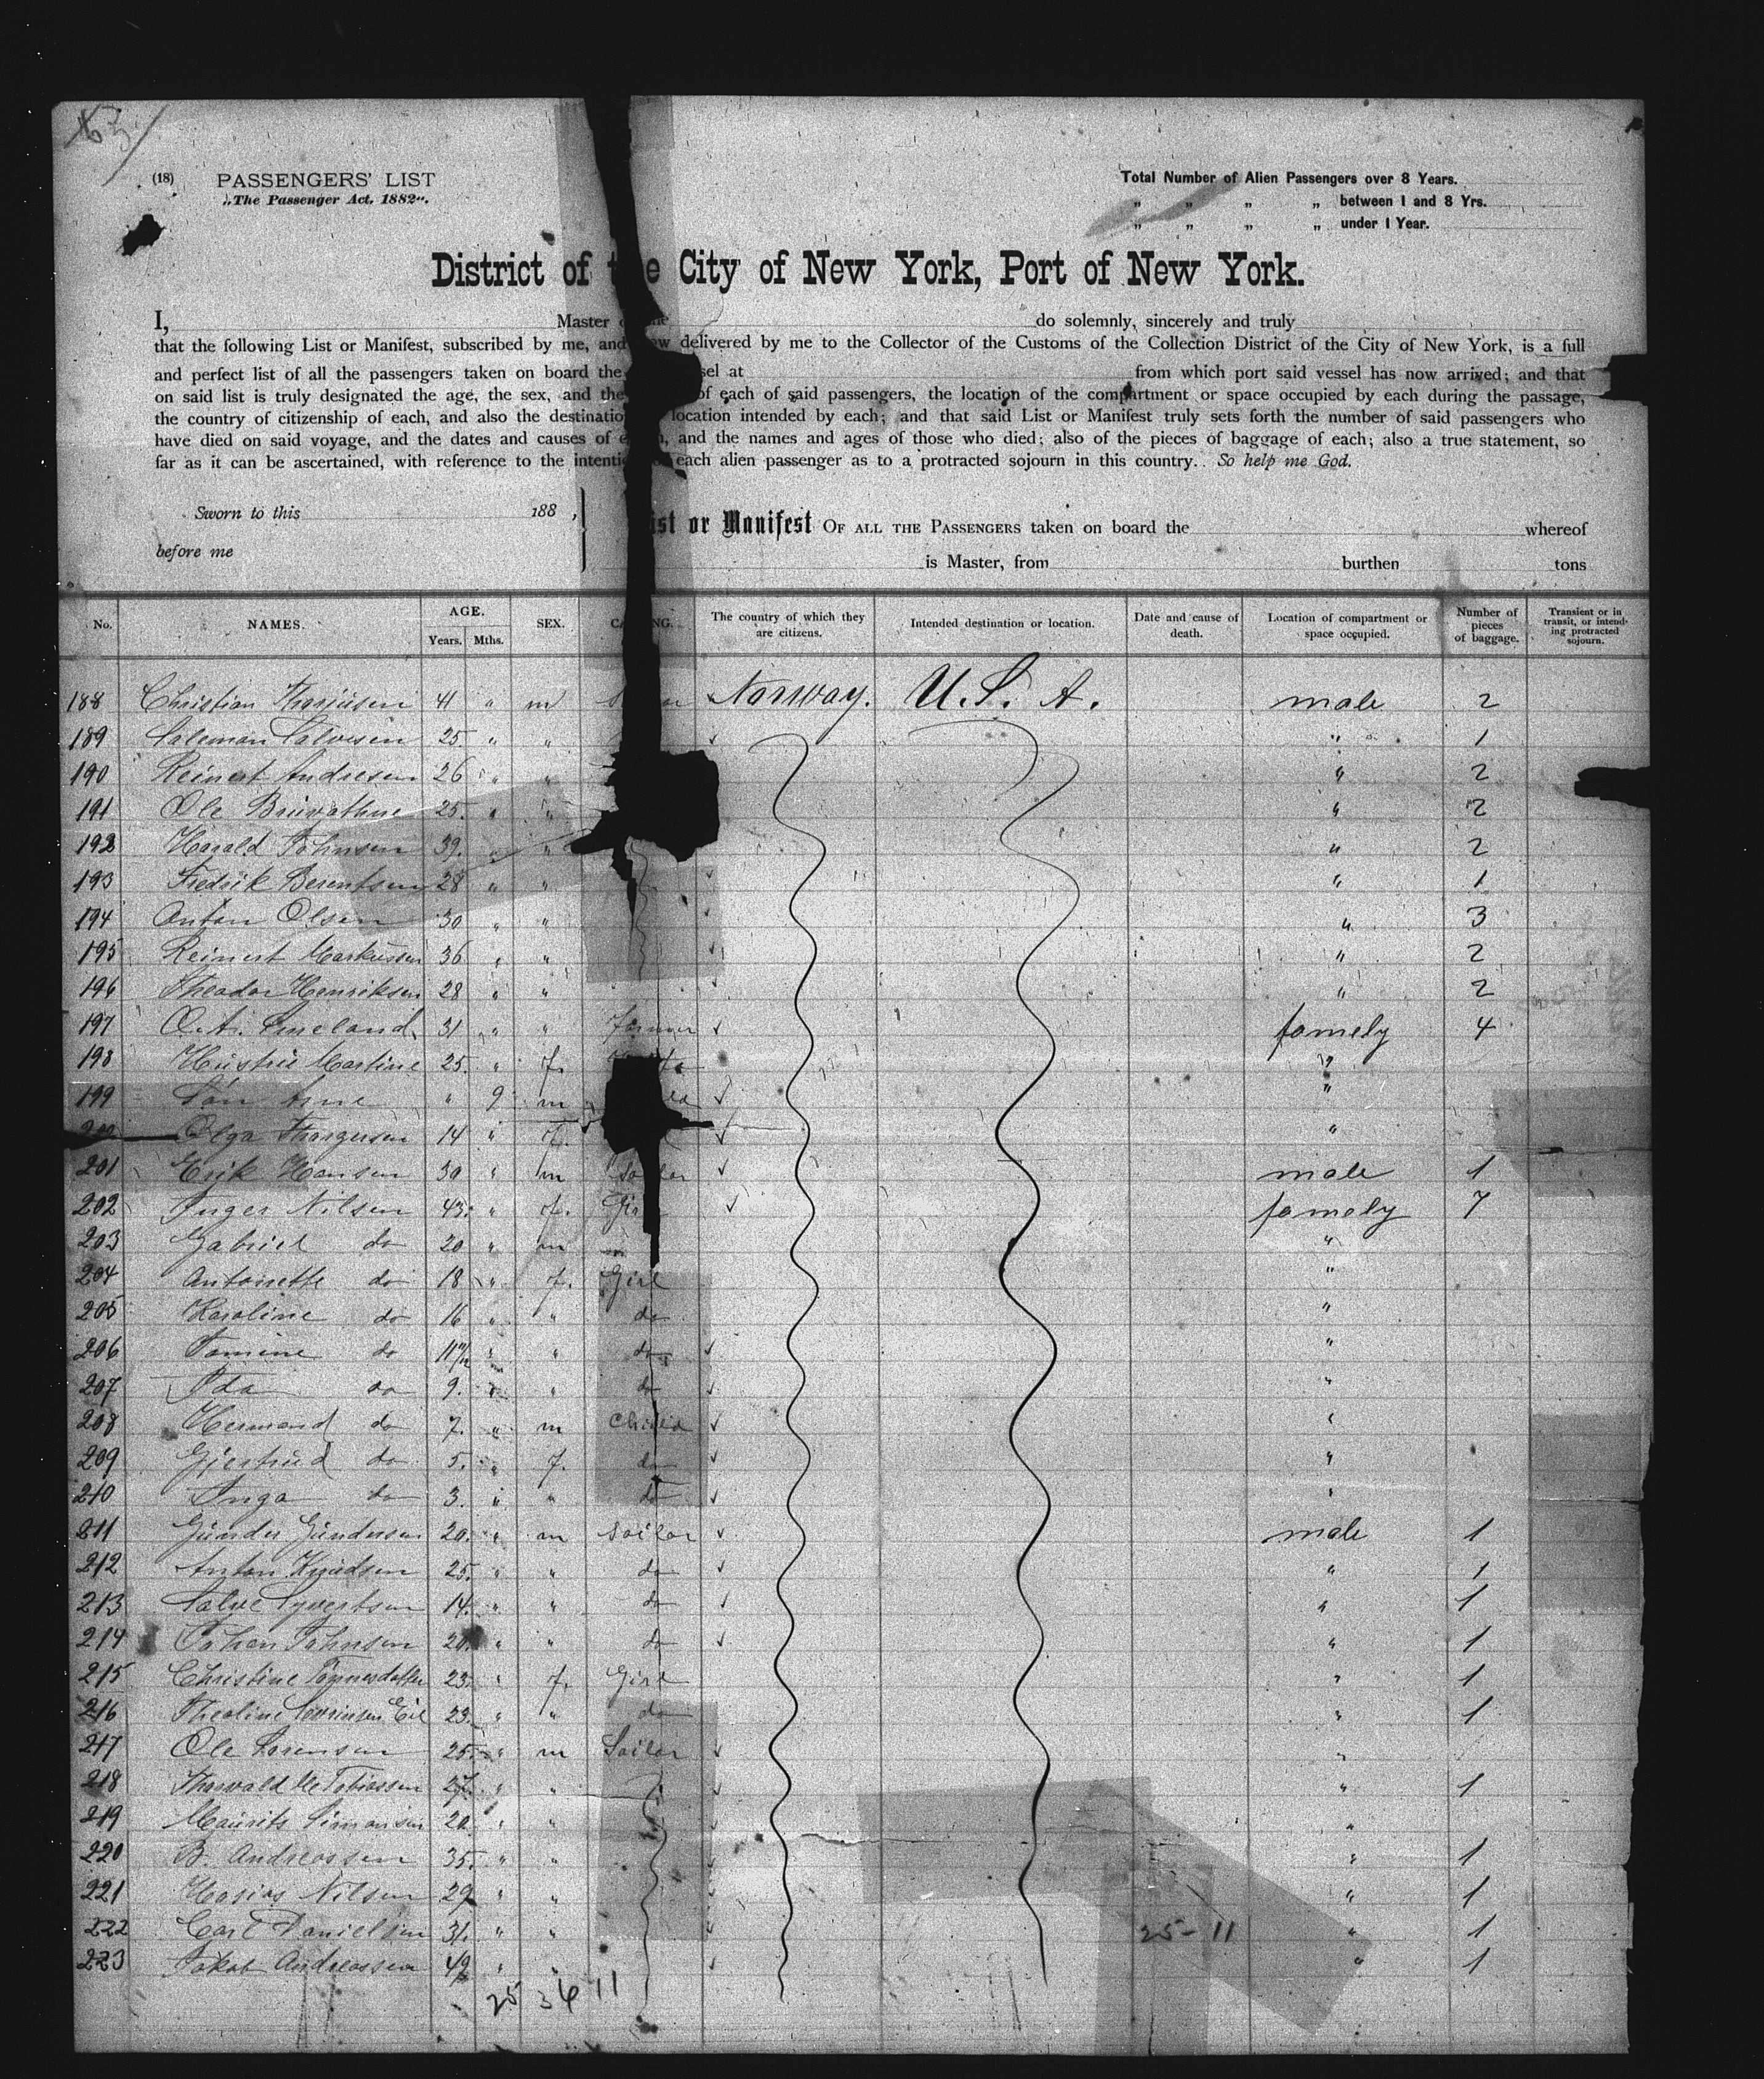 (18) PASSENGERS' LIST
„The Passenger Act, 1882“.
Total Number of Alien Passengers over 8 Years.
„ „ „ „ between 1 and 8 Yrs.
„ „ „ „ under 1 Year.
District of t e City of New York, Port of New York.
I, Master do solemnly, sincerely and truly
that the following List or Manifest, subscribed by me, and ow delivered by me to the Collector of the Customs of the Collection District of the City of New York, is a full
and perfect list of all the passengers taken on board the sel at from which port said vessel has now arrived; and that
on said list is truly designated the age, the sex, and the of each of said passengers, the location of the compartment or space occupied by each during the passage,
the country of citizenship of each, and also the destinatio location intended by each; and that said List or Manifest truly sets forth the number of said passengers who
have died on said voyage, and the dates and causes of , and the names and ages of those who died; also of the pieces of baggage of each; also a true statement, so
far as it can be ascertained, with reference to the intenti each alien passenger as to a protracted sojourn in this country. So help me God.
Sworn to this 188 ,
before me
ist or Manifest OF ALL THE PASSENGERS taken on board the whereof
is Master, from burthen tons
No. NAMES. AGE. Years. Mths. SEX. CA NG. The country of which they are citizens. Intended destination or location. Date and cause of death. Location of compartment or space occupied. Number of pieces of baggage. Transient or in transit, or intending protracted sojourn.
188 Christian 41 " m Norway. U.S. A. male 2
189 Salvesen 25. " " " 1
190 Reinert Andresen 26 " " " 2
191 Ole 25. " " " 2
192 Harald Johnsen 39. " " " 2
193 Fredrik Berentsen 28 " " " 1
194 Anton Olsen 30 " " " 3
195 Reinert Markussen 36 " " " 2
196 Theodor Henriksen 28 " " " 2
197 31 " " farmer famely 4
198 Hustru Martine 25. " f. "
199 Søn Arne " 9 m "
Olga 14 " f. "
201 Erik Hansen 30 " m Sailor male 1
202 Inger Nilsen 43. " f. Girl famely 7
203 Gabriel do 20 " m "
204 Antonette do 18 " f. Girl "
205 Karoline do 16 " " do "
206 do 11 " " do "
207 Ida do 9. " " do "
208 Hermand do 7. " m Child "
209 Gjertrud do 5. " f. do "
210 Inga do 3. " " do "
211 Gunder Gundersen 20. " m Sailor male 1
212 Anton Knudsen 25. " " do " 1
213 Salve Syvertsen 14. " " do " 1
214 Johan Johnsen 20. " " do " 1
215 Christine 23. " f. Girl " 1
216 Theoline 23. " " do " 1
217 Ole Sorensen 25. " m Sailor "
218 Thorvald Tobiassen 27. " " " 1
219 Maurits Simonsen 20. " " "
220 B. Andreassen 35. " " " 1
221 Nilsen 29 " " " 1
222 Carl Danielsen 31. " " 25-11 " 1
223 Jakob Andreassen 49 " " " 1
25 36 11